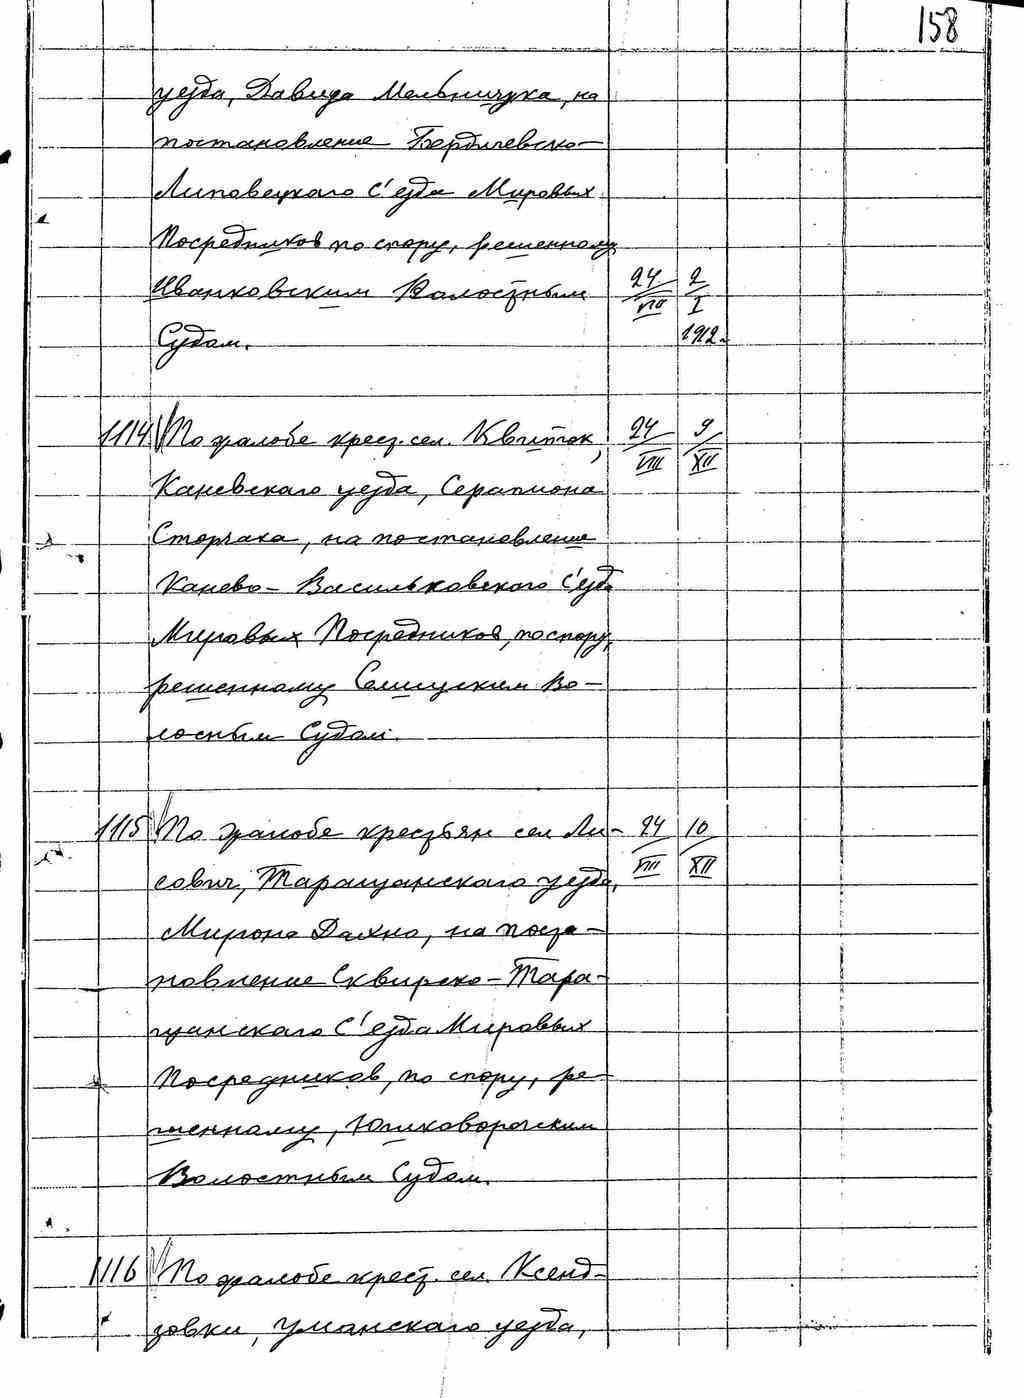 158
уезда, Давида Мельничука, на
постановление Бердичевско-
Липовецкаго С'езда Мировых
Посредников по спору, решенному
Иванковским Волостным 24/VIII 2/I
Судом. 1912.
1114 По жалобе крест. сел. Квиток, 24/VIII 9/XII
Каневскаго уезда, Серапиона
Сторчака, на постановление
Канево-Васильковского С'езда
Мировых Посредников, по спору,
решенному Селищским Во-
лосным Судом.
1115 По жалобе крестьян сел Ли- 24/VIII 10/XII
сович, Таращанскаго уезда,
Мирона Дахно, на поста-
новление Сквирско-Тара-
щанскаго С'езда Мировых
Посредников, по спору, ре-
шенному, Юшковорогским
Волостным Судом.
1116 По жалобе крест. сел. Ксенд-
зовки, Уманскаго уезда,